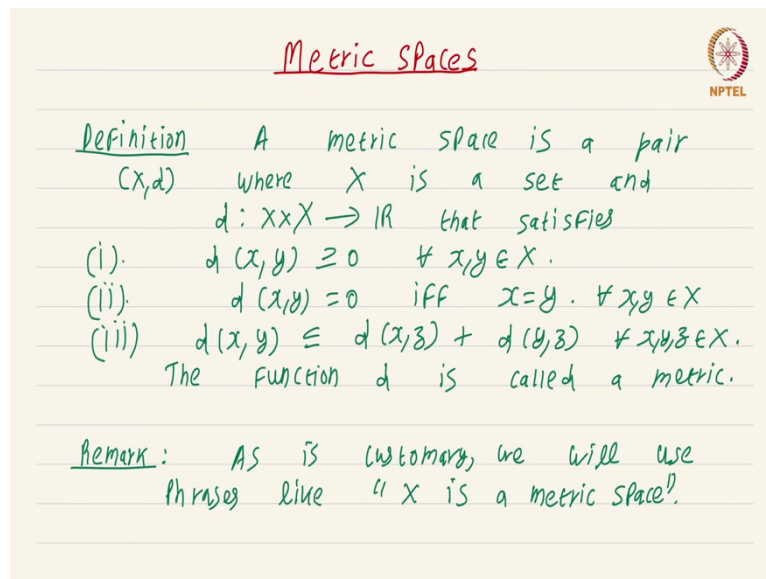 Metric Spaces
NPTEL
Definition A metric space is a pair
(X,d) where X is a set and
d : X×X → ℝ that satisfies
(i). d (x,y) ≥ 0 ∀ x,y ∈ X.
(ii). d (x,y) = 0 iff x=y. ∀ x,y ∈ X
(iii) d(x,y) ≤ d(x,z) + d(y,z) ∀ x,y,z ∈ X.
The function d is called a metric.
Remark: As is customary, we will use
phrases like "X is a metric space".